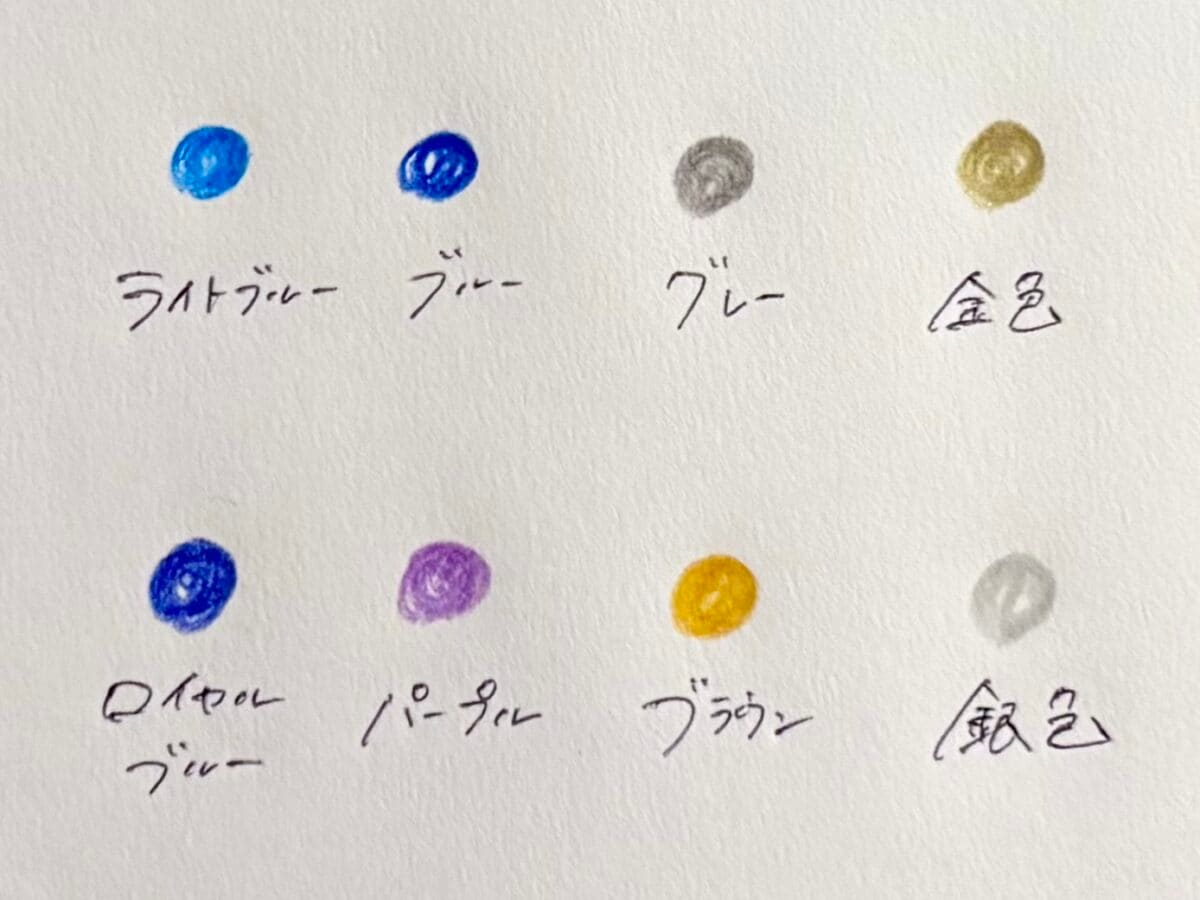 ライトブルー
ブルー
グレー
金色
ロイヤル
ブルー
パープル
ブラウン
銀色